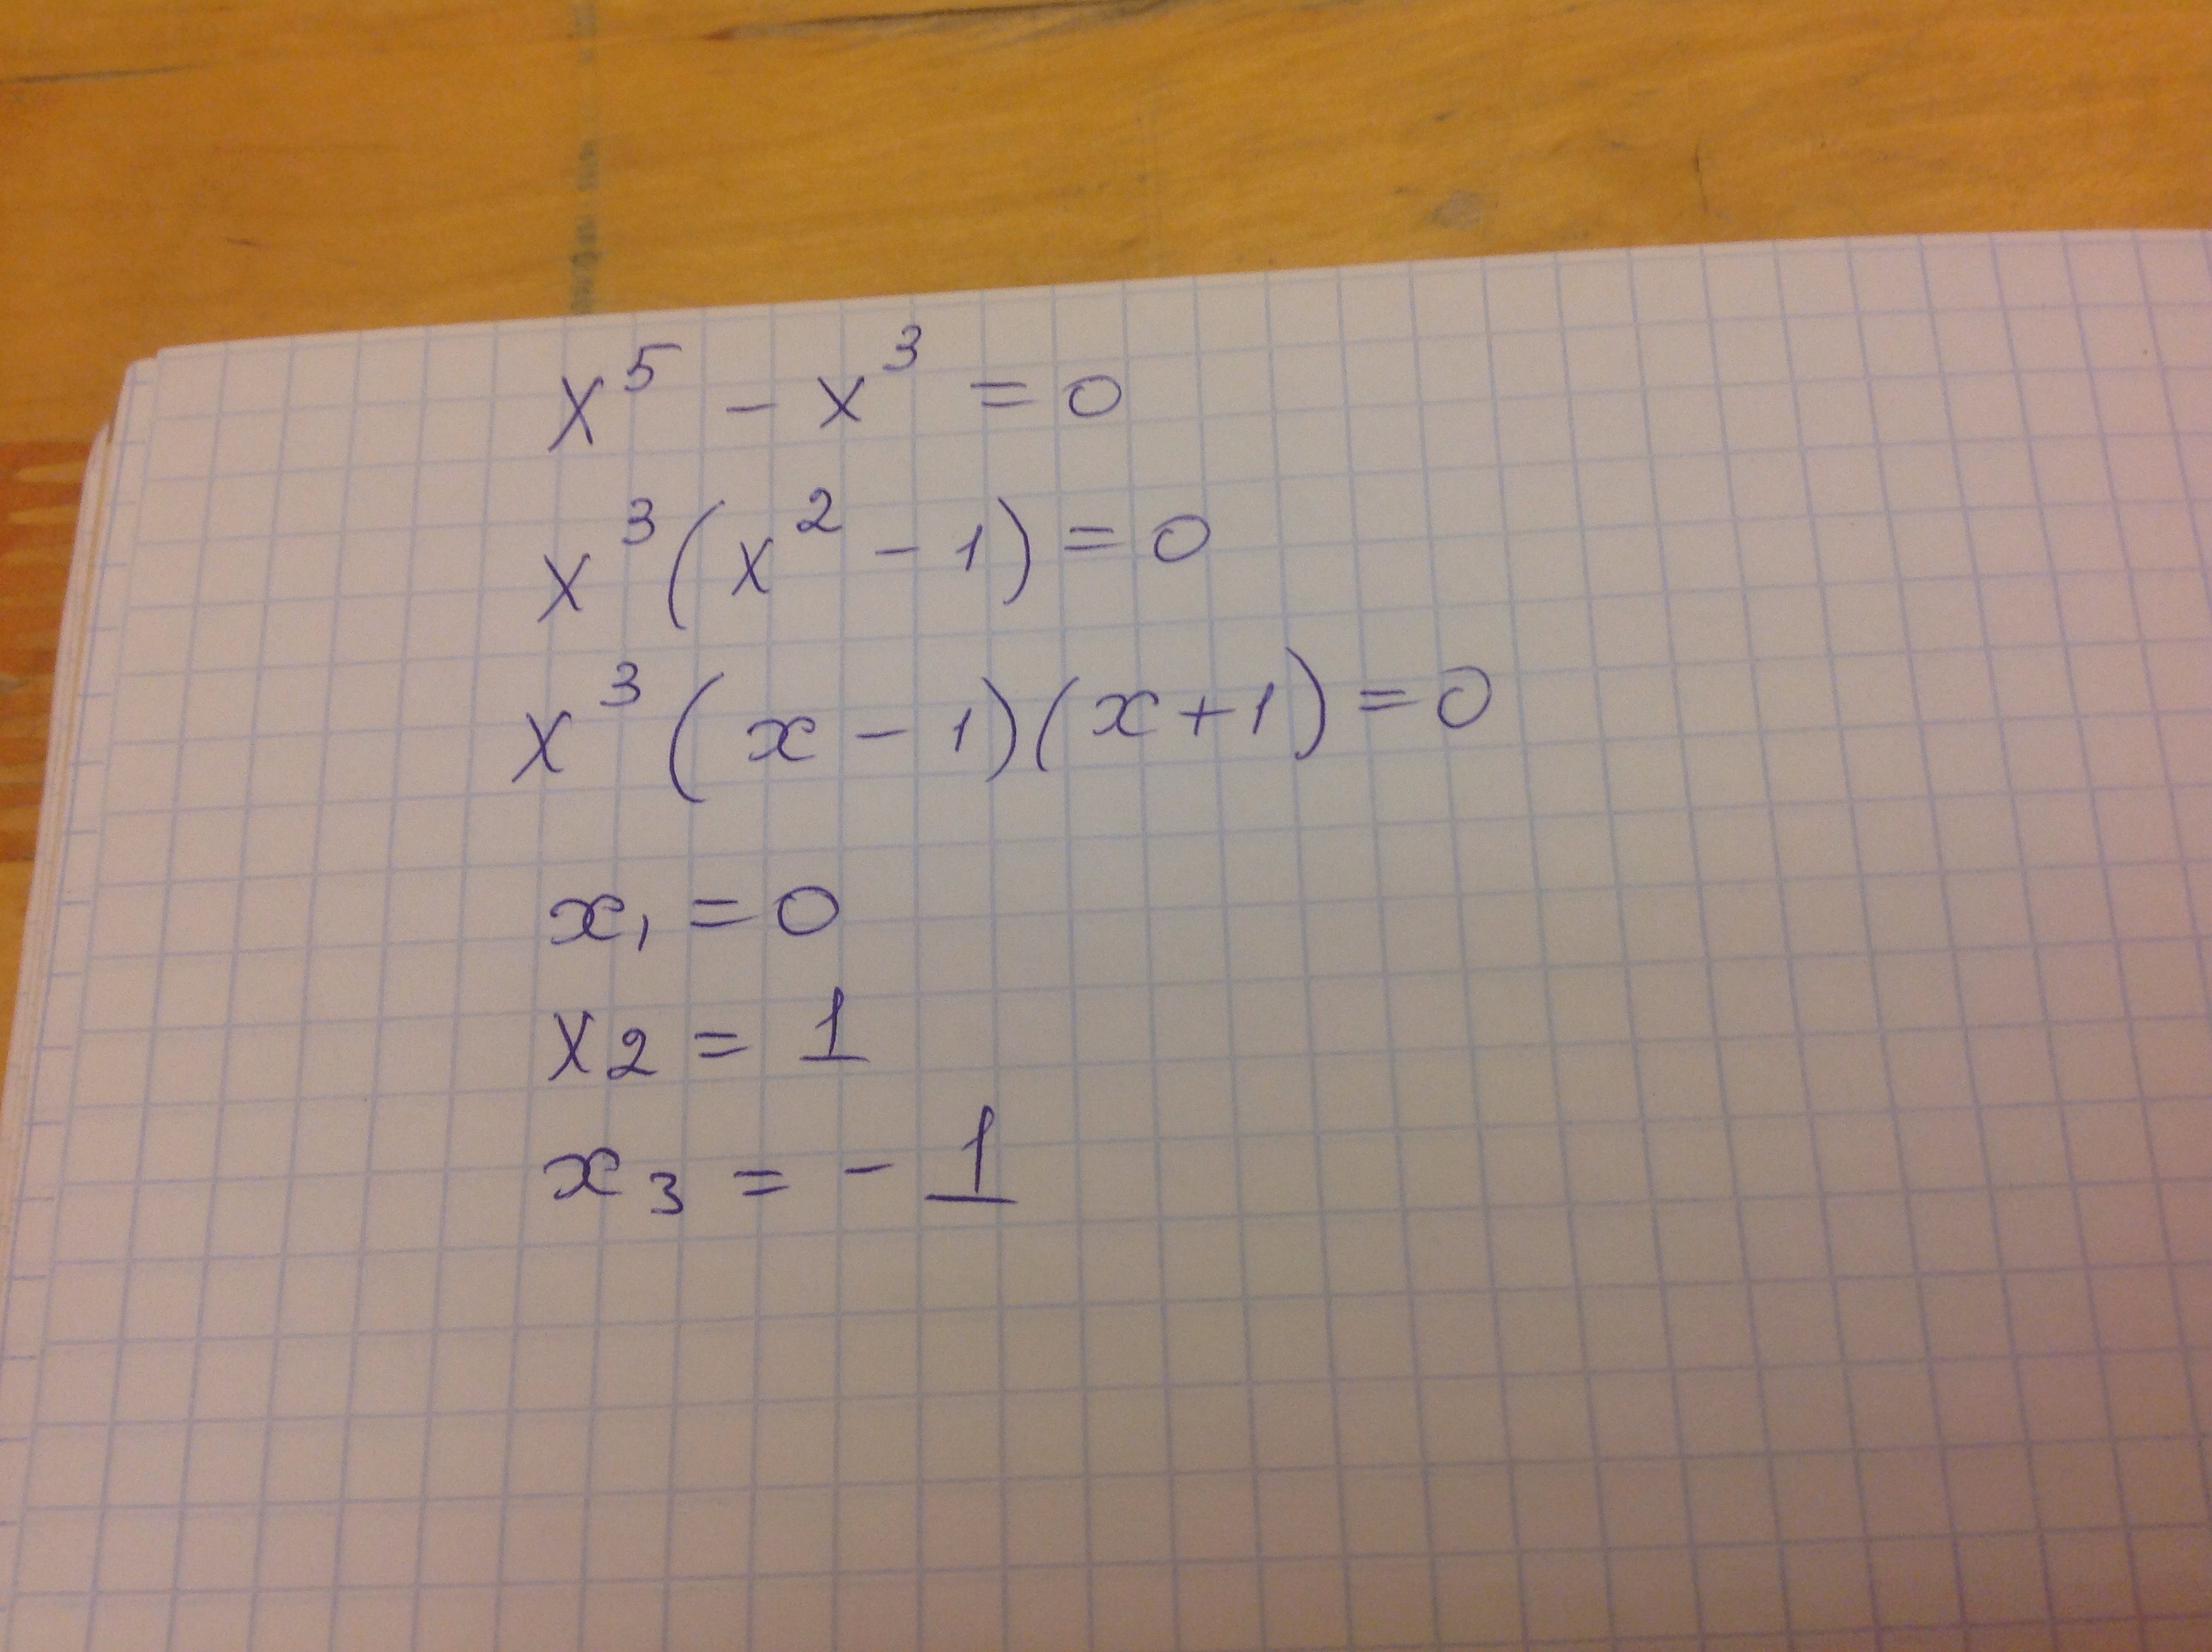 x⁵ - x³ = 0
x³(x² - 1) = 0
x³(x - 1)(x + 1) = 0
x₁ = 0
x₂ = 1
x₃ = - 1